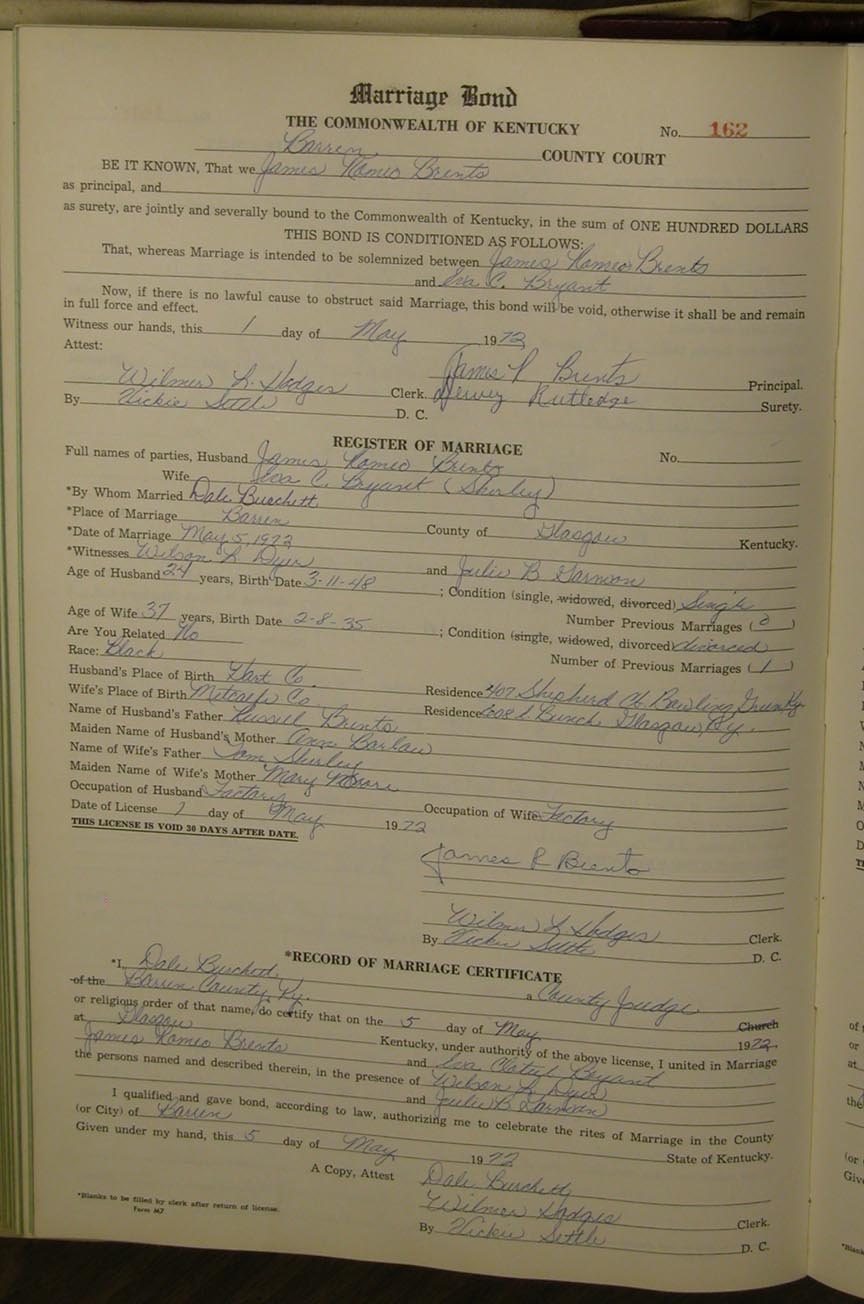 Marriage Bond
THE COMMONWEALTH OF KENTUCKY No. 162
Barren COUNTY COURT
BE IT KNOWN, That we James Romeo Brents
as principal, and
as surety, are jointly and severally bound to the Commonwealth of Kentucky, in the sum of ONE HUNDRED DOLLARS
THIS BOND IS CONDITIONED AS FOLLOWS:
That, whereas Marriage is intended to be solemnized between James Romeo Brents
and Eva C. Bryant
Now, if there is no lawful cause to obstruct said Marriage, this bond will be void, otherwise it shall be and remain
in full force and effect.
Witness our hands, this 1 day of May 1972
Attest:
James R Brents Principal.
Wilmer L. Hodges Clerk. Dervey Rutledge Surety.
By Vickie Settle D. C.
REGISTER OF MARRIAGE
Full names of parties, Husband James Romeo Brents No.
Wife Eva C. Bryant (Shirley)
*By Whom Married Dale Burchett
*Place of Marriage Barren County of Glasgow Kentucky.
*Date of Marriage May 5, 1972
*Witnesses Wilson L Dyer and Julie B Garmon
Age of Husband 24 years, Birth Date 3-11-48; Condition (single, widowed, divorced) Single
Number Previous Marriages (0)
Age of Wife 37 years, Birth Date 2-8-35; Condition (single, widowed, divorced) divorced
Are You Related No Number of Previous Marriages (1)
Race: Black
Husband's Place of Birth Hart Co. Residence 407 Shepherd Ct Bowling Green Ky
Wife's Place of Birth Metcalfe Co. Residence 1008 S Bunch, Glasgow, Ky.
Name of Husband's Father Russell Brents
Maiden Name of Husband's Mother Ann Barlow
Name of Wife's Father Tom Shirley
Maiden Name of Wife's Mother Mary Moore
Occupation of Husband Factory Occupation of Wife Factory
Date of License 1 day of May 1972
THIS LICENSE IS VOID 30 DAYS AFTER DATE.
James R Brents
Wilmer L Hodges Clerk.
By Vickie Settle D. C.
*RECORD OF MARRIAGE CERTIFICATE
*I, Dale Burchett, a County Judge
of the Barren County, Ky. Church
or religious order of that name, do certify that on the 5 day of May 1972,
at Glasgow Kentucky, under authority of the above license, I united in Marriage
James Romeo Brents and Eva Bryant
the persons named and described therein, in the presence of Wilson L. Dyer
and Julie B Garmon
I qualified and gave bond, according to law, authorizing me to celebrate the rites of Marriage in the County
(or City) of Barren State of Kentucky.
Given under my hand, this 5 day of May 1972
Dale Burchett
A Copy, Attest Wilmer Hodges Clerk.
By Vickie Settle D. C.
*Blanks to be filled by clerk after return of license.
Form M7